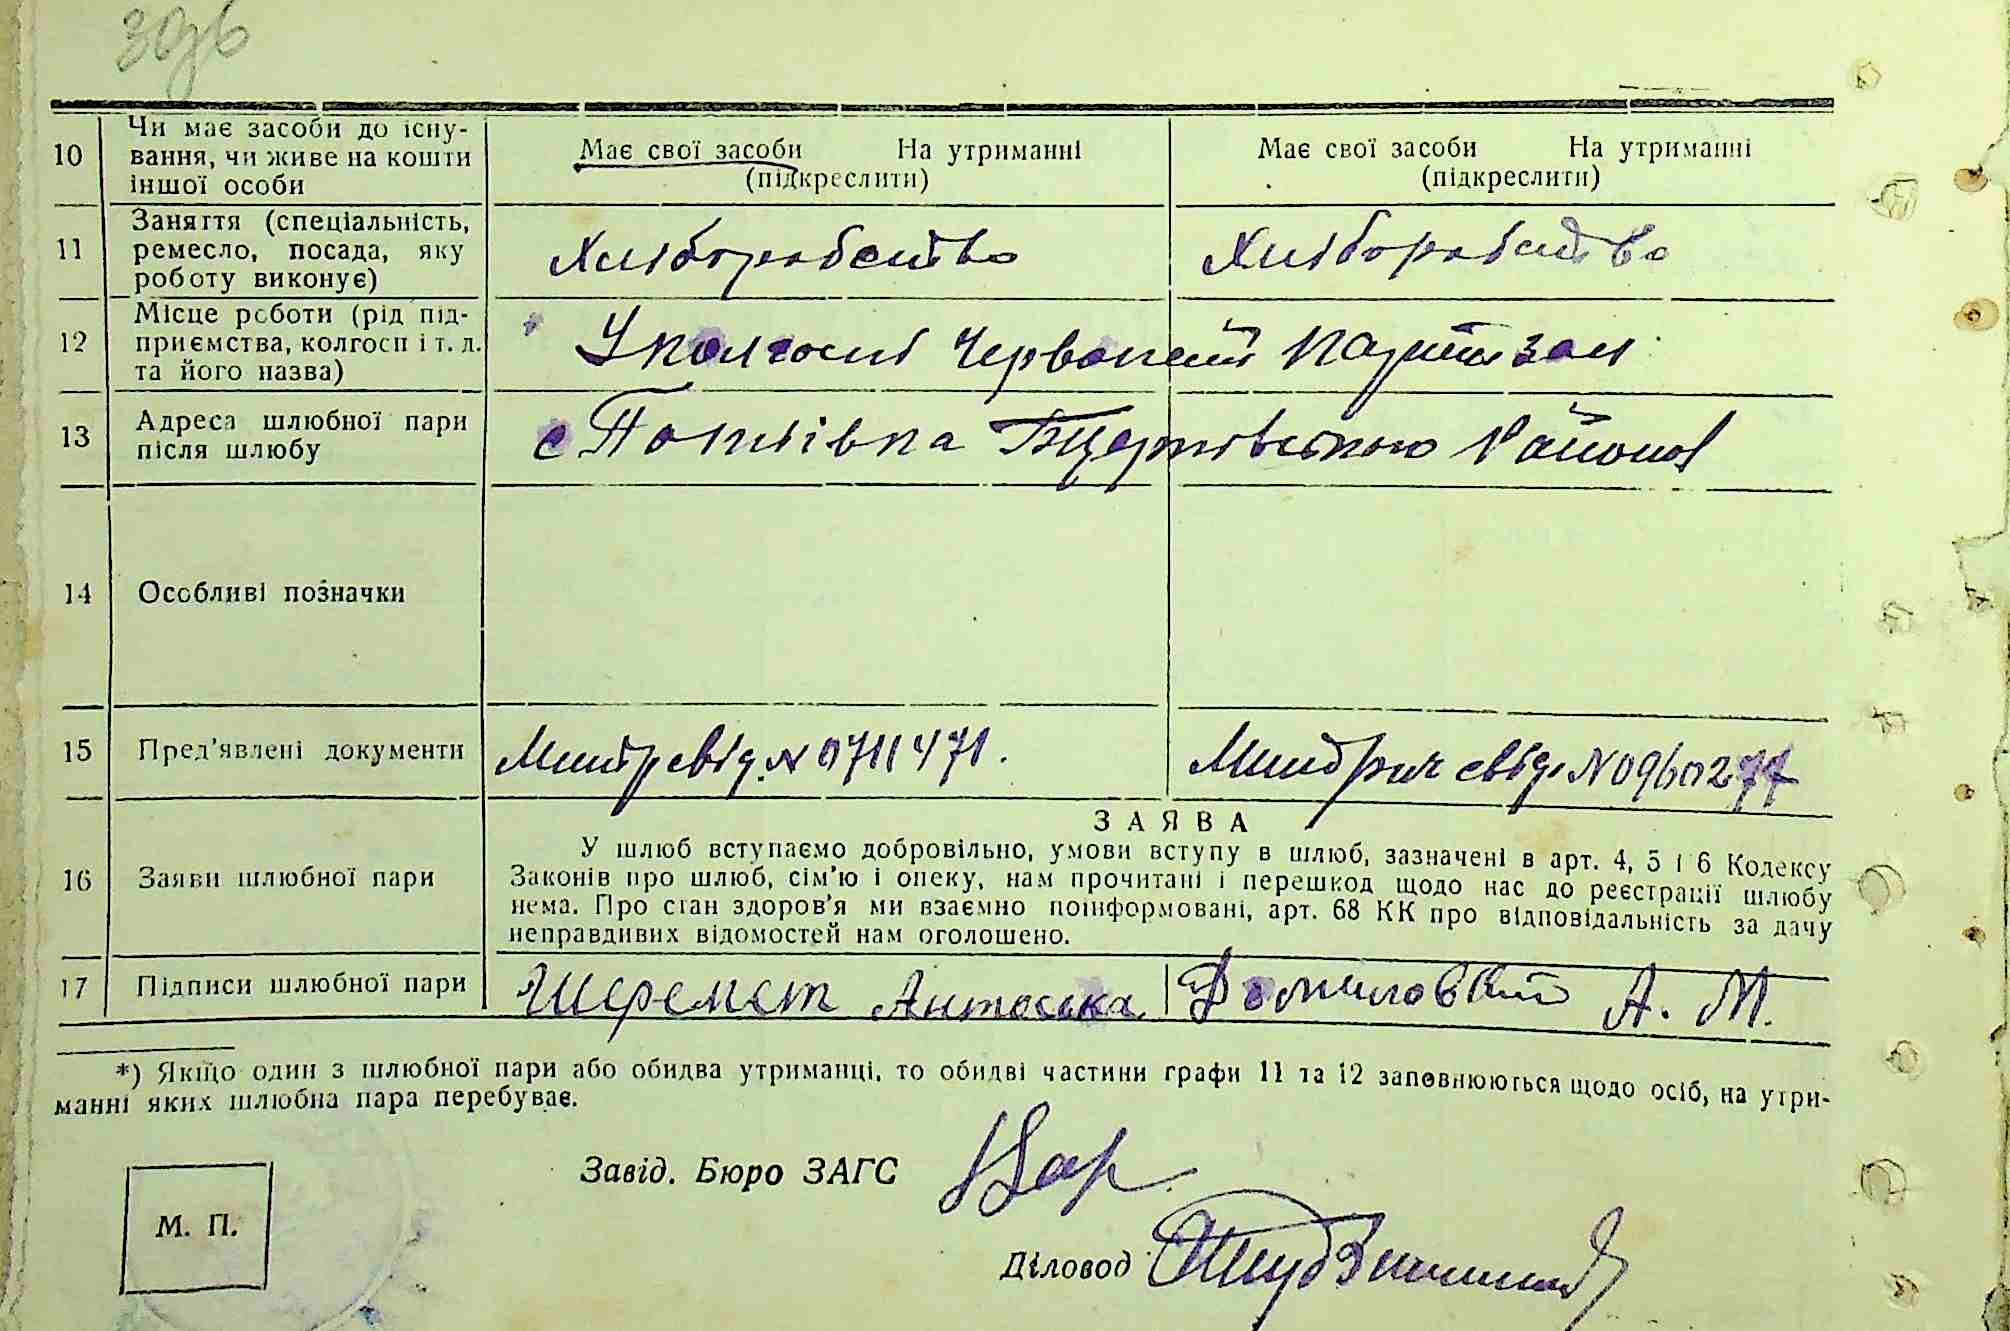 10
Чи має засоби до існу-
вання, чи живе на кошти
іншої особи
Має свої засоби На утриманні
(підкреслити)
Має свої засоби На утриманні
(підкреслити)
11
Заняття (спеціальність,
ремесло, посада, яку
роботу виконує)
Хліборобство
Хліборобство
12
Місце роботи (рід під-
приємства, колгосп і т. д.
та його назва)
У колгоспі Червоний Партизан
13
Адреса шлюбної пари
після шлюбу
с
14
Особливі позначки
15
Пред'явлені документи
свід. N 0711471.
свід. N 0960277
16
Заяви шлюбної пари
ЗАЯВА
У шлюб вступаємо добровільно, умови вступу в шлюб, зазначені в арт. 4, 5 і 6 Кодексу
Законів про шлюб, сім'ю і опеку, нам прочитані і перешкод щодо нас до реєстрації шлюбу
нема. Про стан здоров'я ми взаємно поінформовані, арт. 68 КК про відповідальність за дачу
неправдивих відомостей нам оголошено.
17
Підписи шлюбної пари
Шеремет Антоська
А. М.
*) Якщо один з шлюбної пари або обидва утриманці, то обидві частини графи 11 та 12 заповнюються щодо осіб, на утри-
манні яких шлюбна пара перебуває.
Завід. Бюро ЗАГС
М. П.
Діловод